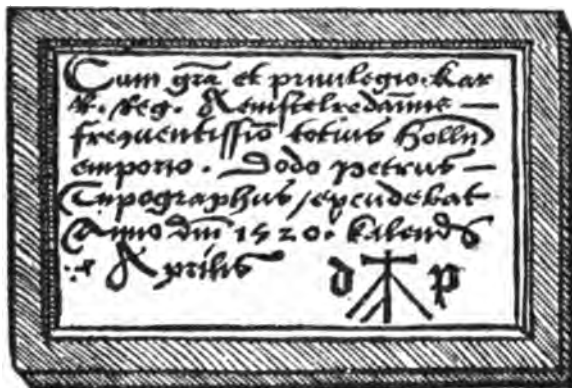 Cum gr̄a et priuilegio. kar
R. Reg. Aemstelredam̄e —
frequentissiō totius Holln̄
emporio. Dodo petrus —
Typographus / excudebat
Anno dn̄i 1520. kalend̄
Aprilis d p